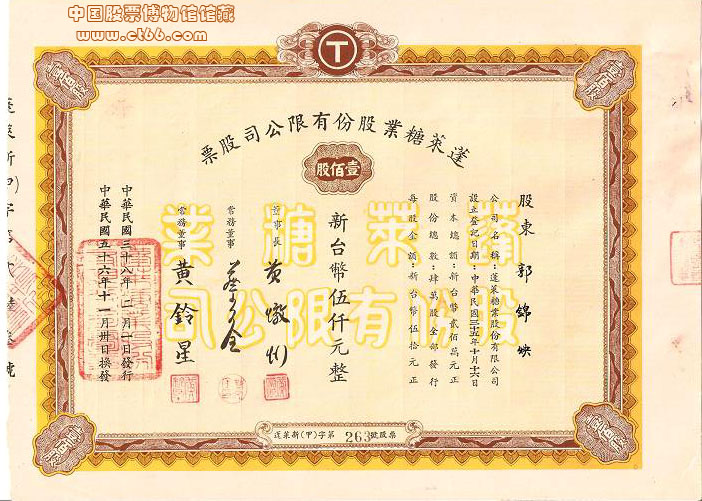 中国股票博物馆馆藏
www.ct66.com
T
壹百股
壹百股
蓬萊糖業股份有限公司股票
壹佰股
蓬萊糖業
股份有限公司
股東 郭錦㛐
公司名稱：蓬萊糖業股份有限公司
設立登記日期：中華民國三十五年十月十六日
資本總額：新台幣貳佰萬元正
股份總數：肆萬股全部發行
每股金額：新台幣伍拾元正
新台幣伍仟元整
董事長 黃
常務董事
常務董事 黃鈴星
中華民國三十八年二月一日發行
中華民國五十六年十一月卅日換發
蓬萊新(甲)字第
蓬萊新(甲)字第 263 號股票
壹百股
壹百股